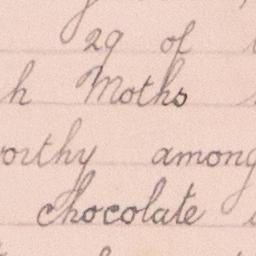 29 of
h Moths
orthy among
chocolate